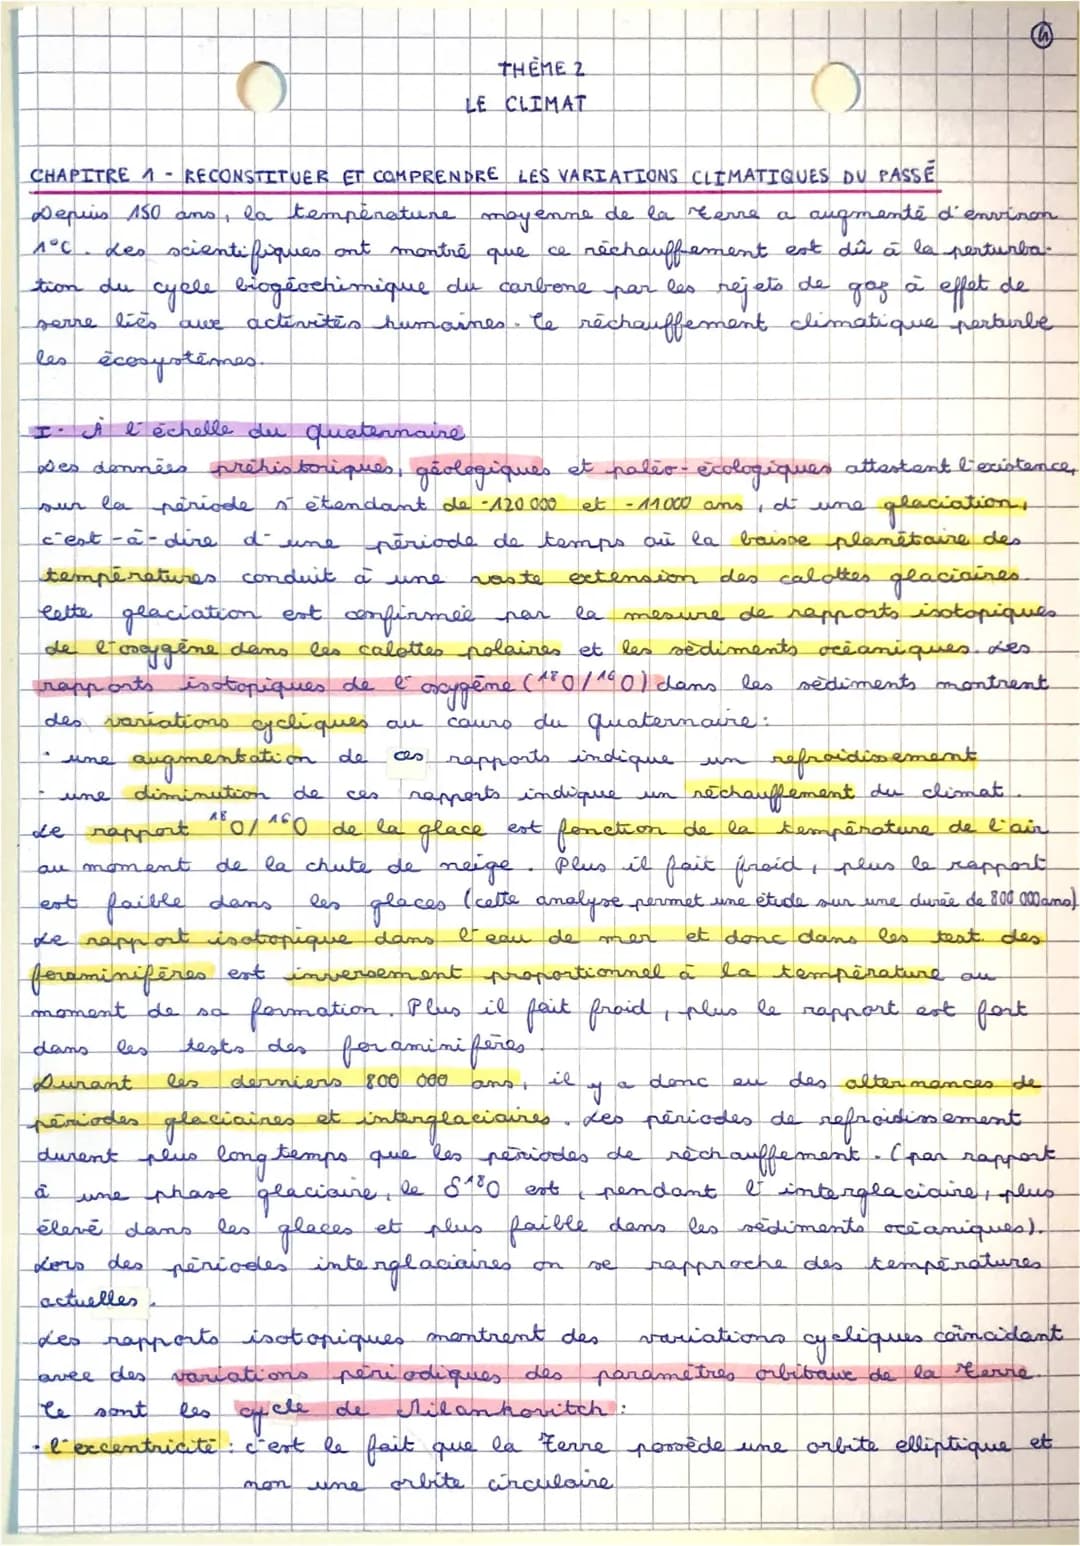 4
THÈME 2
LE CLIMAT
CHAPITRE 1 - RECONSTITUER ET COMPRENDRE LES VARIATIONS CLIMATIQUES DU PASSÉ
Depuis 150 ans, la température moyenne de la Terre a augmenté d'environ
1°C. Les scientifiques ont montré que ce réchauffement est dû à la perturba-
tion du cycle biogéochimique du carbone par les rejets de gaz à effet de
serre liés aux activités humaines. Ce réchauffement climatique perturbe
les écosystèmes.
I - À l'échelle du quaternaire
Des données préhistoriques, géologiques et paléo-écologiques attestant l'existence,
sur la période s'étendant de -120 000 et -11 000 ans, d'une glaciation,
c'est-à-dire d'une période de temps où la baisse planétaire des
températures conduit à une vaste extension des calottes glaciaires.
Cette glaciation est confirmée par la mesure de rapports isotopiques
de l'oxygène dans les calottes polaires et les sédiments océaniques. Les
rapports isotopiques de l'oxygène (18O/16O) dans les sédiments montrent
des variations cycliques au cours du quaternaire :
· une augmentation de ces rapports indique un refroidissement
- une diminution de ces rapports indique un réchauffement du climat.
Le rapport 18O/16O de la glace est fonction de la température de l'air
au moment de la chute de neige. Plus il fait froid, plus le rapport
est faible dans les glaces (cette analyse permet une étude sur une durée de 800 000 ans)
Le rapport isotopique dans l'eau de mer et donc dans les test des
foraminifères est inversement proportionnel à la température au
moment de sa formation. Plus il fait froid, plus le rapport est fort
dans les tests des foraminifères.
Durant les derniers 800 000 ans, il y a donc eu des alternances de
périodes glaciaires et interglaciaires. Les périodes de refroidissement
durent plus longtemps que les périodes de réchauffement. (par rapport
à une phase glaciaire, le δ18O est, pendant l'interglaciaire, plus
élevé dans les glaces et plus faible dans les sédiments océaniques).
Lors des périodes interglaciaires on se rapproche des températures
actuelles.
Les rapports isotopiques montrent des variations cycliques coïncidant
avec des variations périodiques des paramètres orbitaux de la Terre.
Ce sont les cycle de Milankovitch :
· l'excentricité : c'est le fait que la Terre possède une orbite elliptique et
non une orbite circulaire